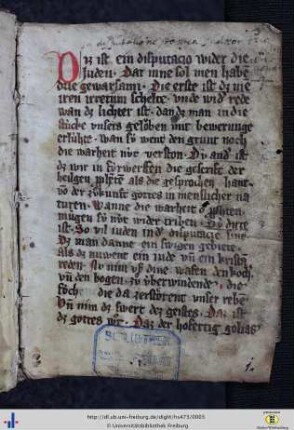 Diz ist ein disputacio wider die
Juden. Dar inne sol men habe
drie gewarsami. Die erste ist dz me
iren irretum schelte. vnde wid rede
wan dz lichter ist. dan dz man in die
stücke vnsers gelöben mit bewerunge
erfülte. wan sü went den grunt noch
die warheit nüt verston. Dü and ist
dz wir in fürwerffen die geschrift der
heilgen
vō der zůkunft gottes in menslicher na
turen. Wanne die warheit
mügen sü nüt wider triben. Dü dirte
ist. So vil iuden ind disputacie sint
Dz man danne ein swigen gebiete.
als dz nuwent ein iude vñ ein kristen
reden. Nu nim vf dine wafen den koch
vñ den bogen zů überwindende. die
föhe. die da zerstörent vnser rebe
Vñ nim dz swert des geistes. Daz ist
dz gottes wort. Daz der hofertig golias
1.
http://dl.ub.uni-freiburg.de/diglit/hs473/0005
© Universitätsbibliothek Freiburg